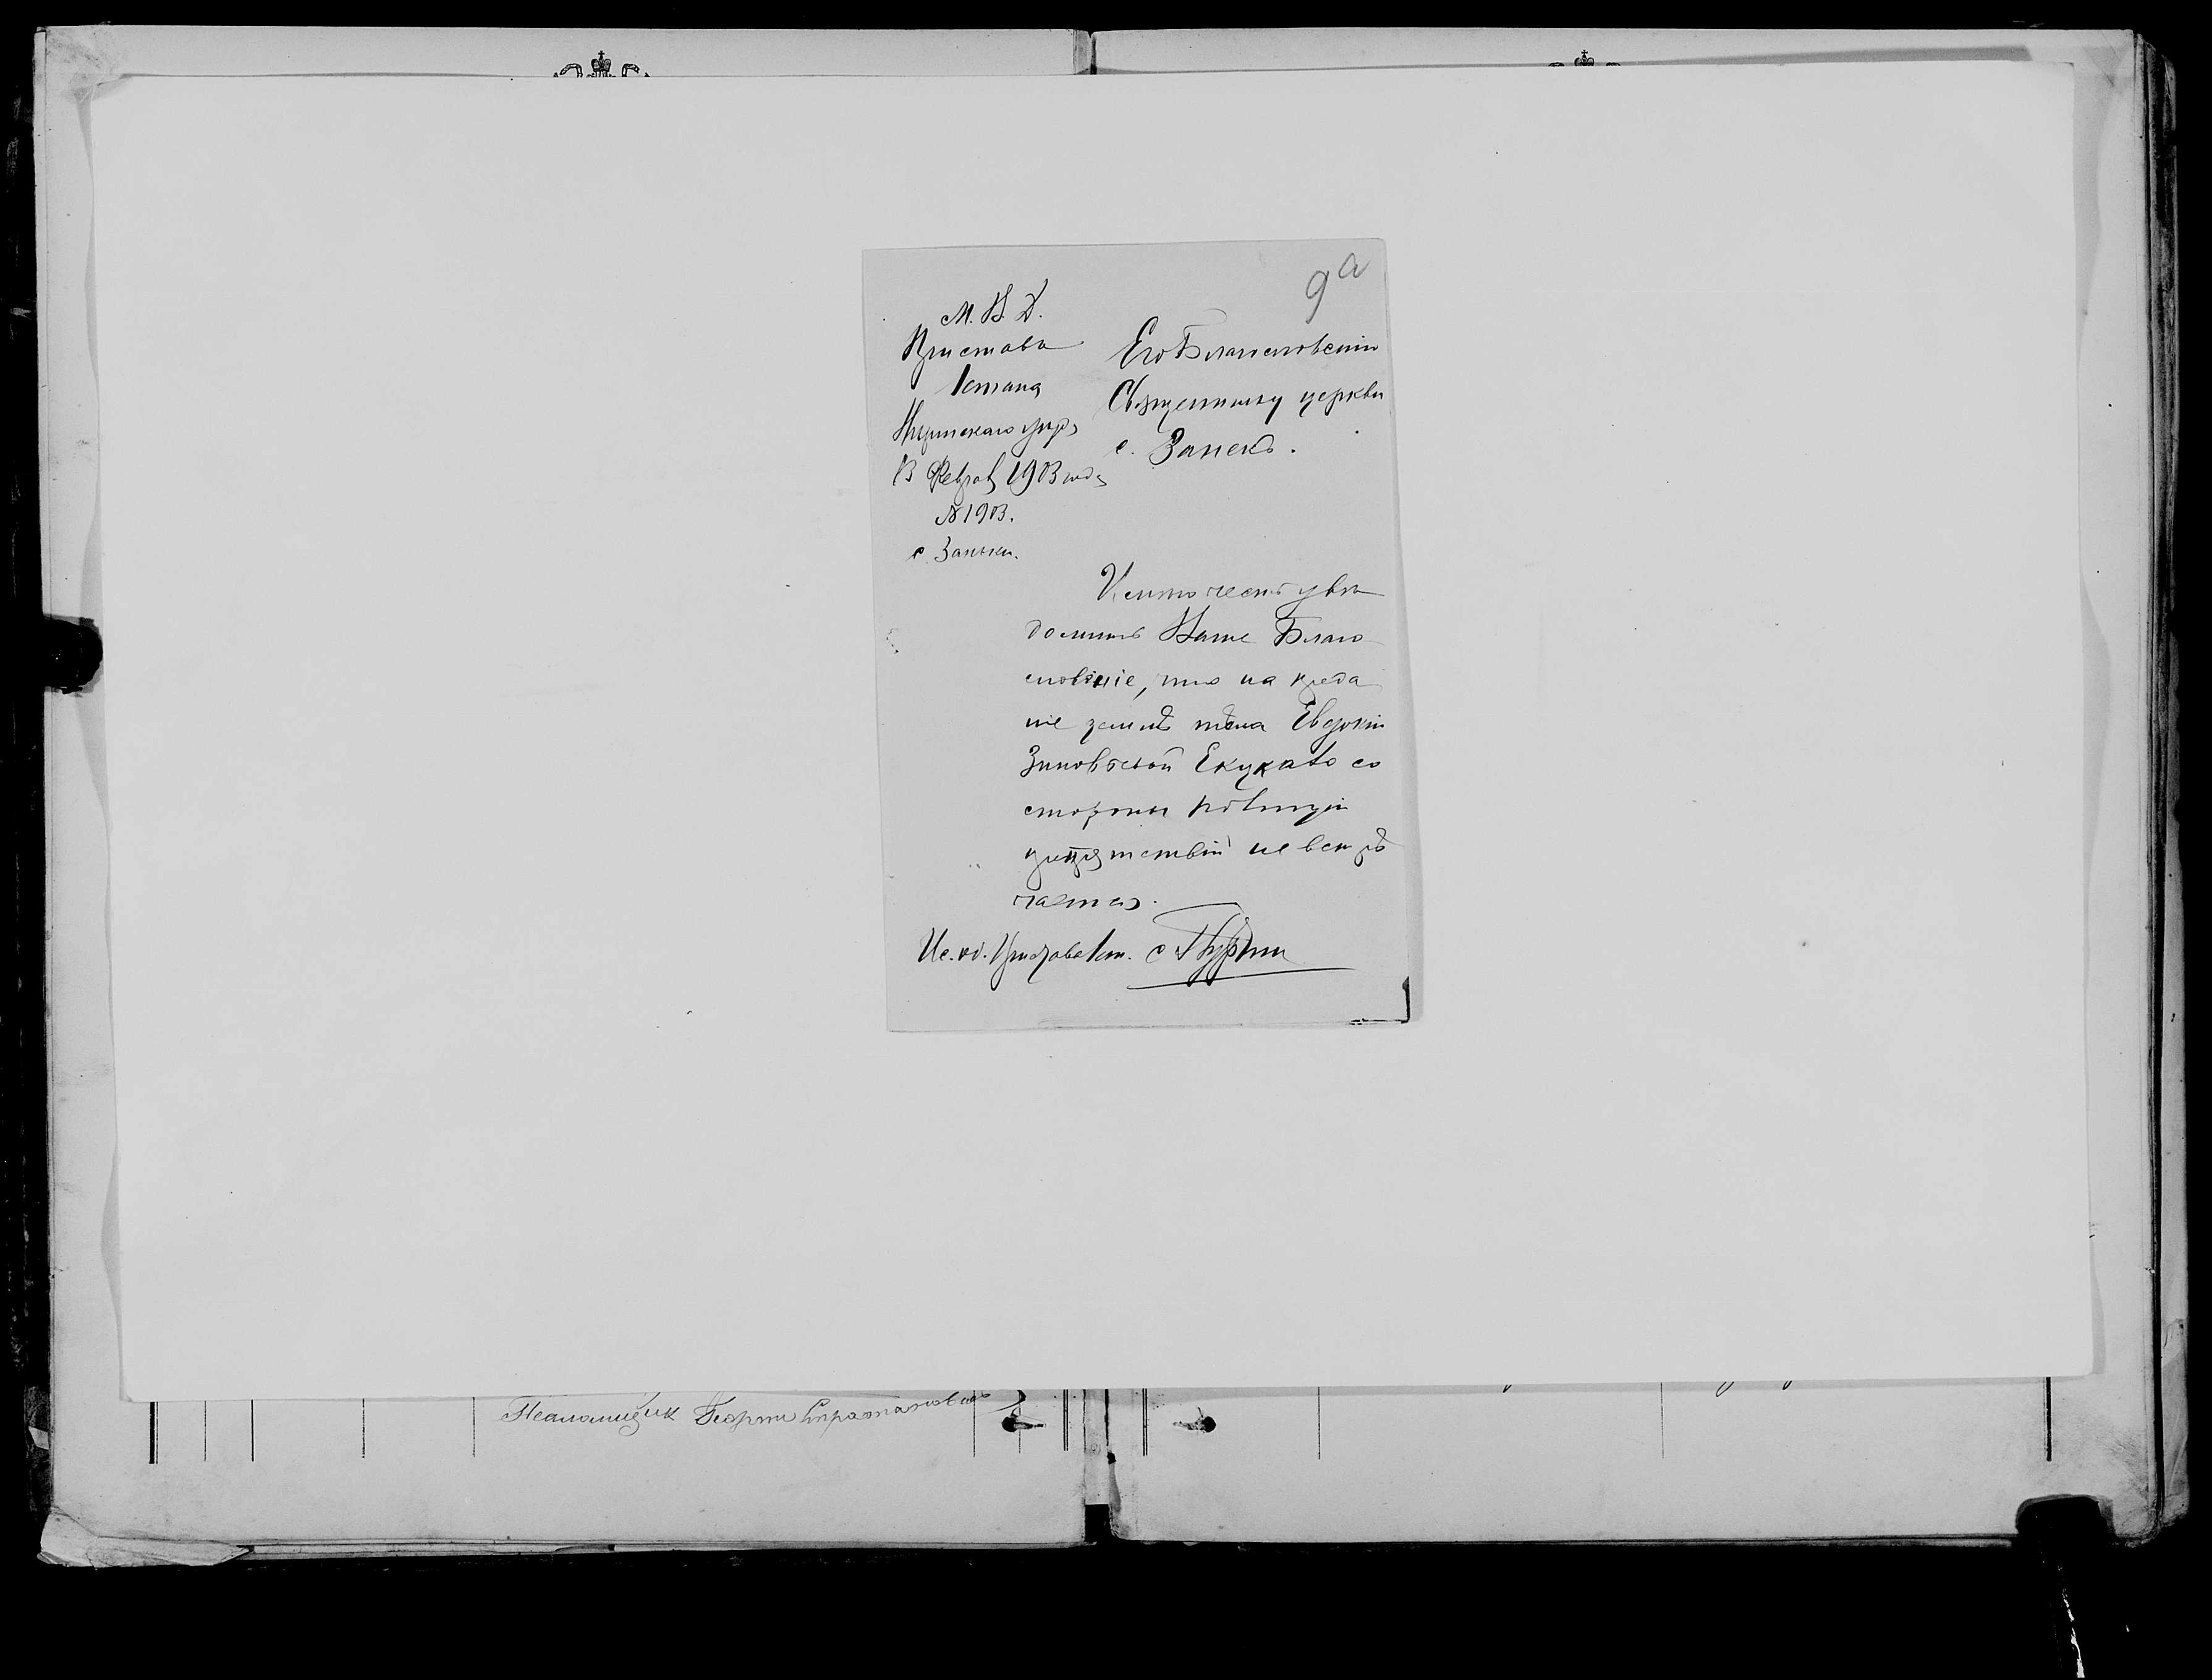 9а
М. В. Д.
Пристава
1 стана
уѣзда
13 Февраля 1903 года
№ 1903.
с. Заньки.
Его Благословенію
Священнику церкви
с. Занекъ.
Имѣю честь увѣ
домить Ваше Благо
словѣніе, что на преда
ніе землѣ тѣла Евдокіи
Зиновьевой со
стороны полиціи
препятствій не встрѣ
чается.
Ис. об. Пристава 1 ст.
Псаломщик Георгий